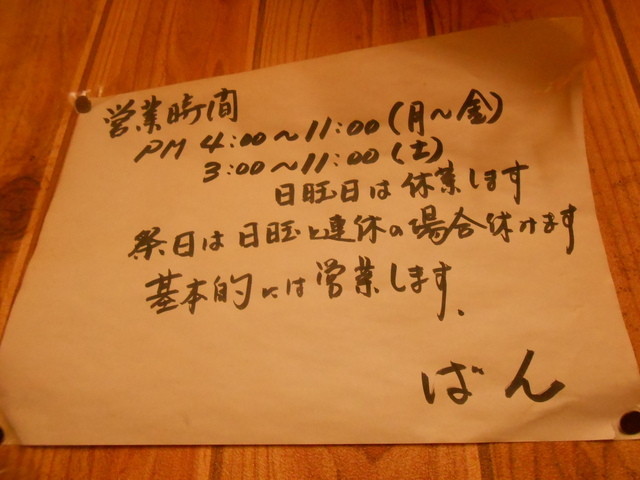 営業時間
PM 4:00〜11:00(月〜金)
3:00〜11:00(土)
日旺日は休業します
祭日は日旺と連休の場合休けます
基本的には営業します.
ばん